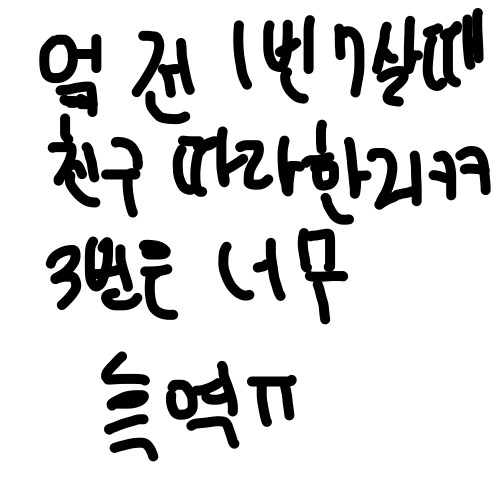 엌 전 1번 7살때
친구 따라한리ㅋㅋ
3번은 너무
흑역ㅠ